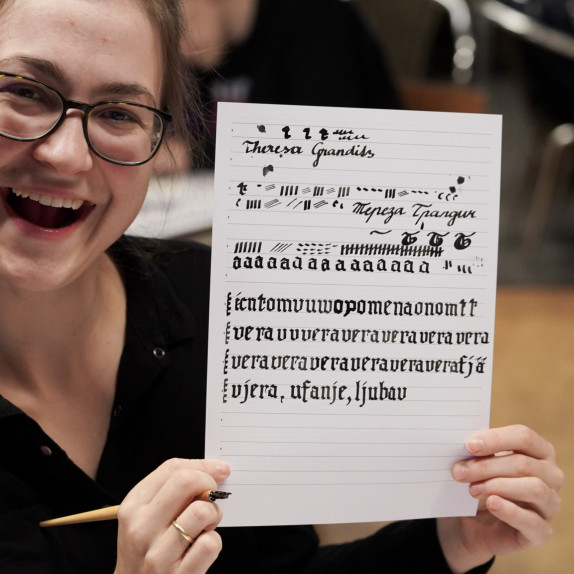 Theresa Grandits
Тереза Грандитс
aaaaaaaaaaaaaaa
icntomvuwopomenaonomtt
vera v v vera vera vera vera vera
vera vera vera vera vera vera fjä
vjera, ufanje, ljubav